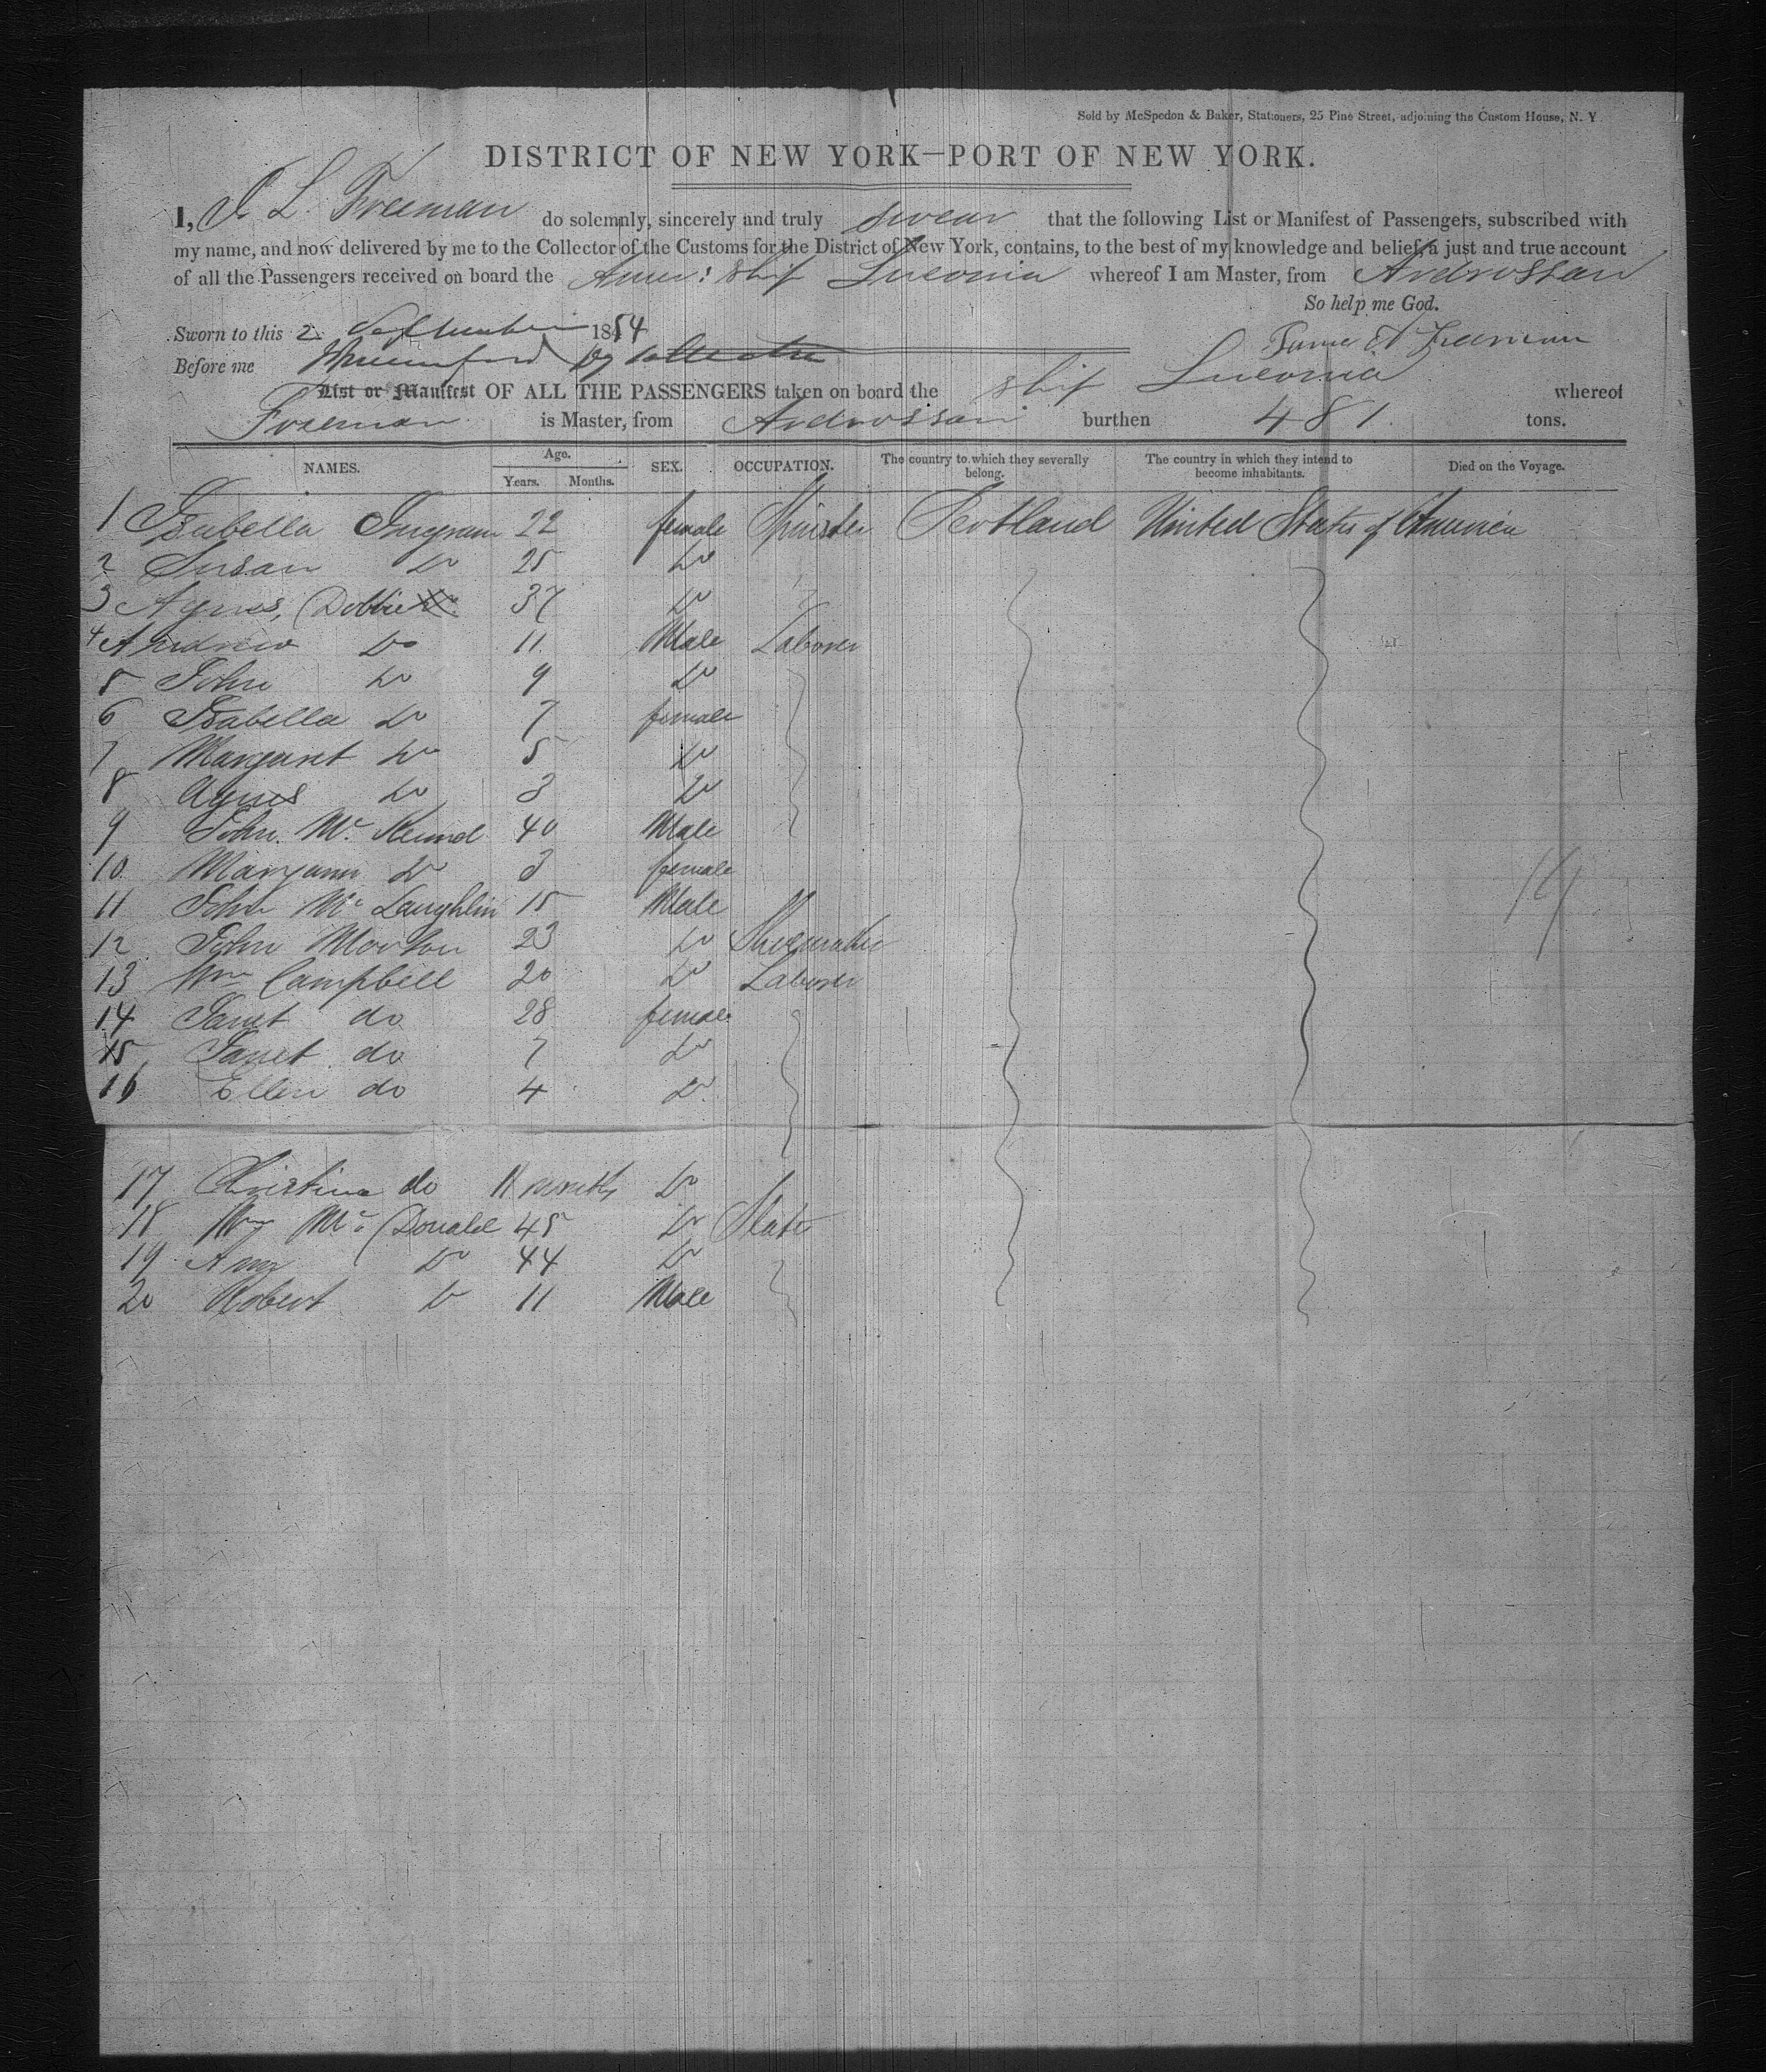 Sold by McSpedon & Baker, Stationers, 25 Pine Street, adjoining the Custom House, N. Y.
DISTRICT OF NEW YORK—PORT OF NEW YORK.
I, J. L. Freeman do solemnly, sincerely and truly swear that the following List or Manifest of Passengers, subscribed with
my name, and now delivered by me to the Collector of the Customs for the District of New York, contains, to the best of my knowledge and belief, a just and true account
of all the Passengers received on board the Amer: Ship Luconia whereof I am Master, from Ardrossan
So help me God.
Sworn to this 2 September 1854
Before me
Freeman
List or Manifest OF ALL THE PASSENGERS taken on board the Ship Luconia whereof
Freeman is Master, from Ardrossan burthen 481 tons.
NAMES. Age. Years. Months. SEX. OCCUPATION. The country to which they severally belong. The country in which they intend to become inhabitants. Died on the Voyage.
1 Isabella Ingram 22 female Spinster Scotland United States of America
2 Susan Do 25 Do
3 Agnes Dobbie 37 Do
4 Andrew Do 11 Male Laborer
5 John Do 9 Do
6 Isabella Do 7 female
7 Margaret Do 5 Do
8 Agnes Do 3 Do
9 John Mc 40 Male
10 Maryann Do 3 female
11 John Mc Laughlin 15 Male
12 John Morton 23 Do Shoemaker
13 Wm Campbell 20 Do Laborer
14 Janet do 28 female
15 Janet do 7 Do
16 Ellen do 4 Do
17 Christina do 11 months Do
18 Mc Donald 45 Do Slater
19 Ann Do 44 Do
20 Robert Do 11 Male